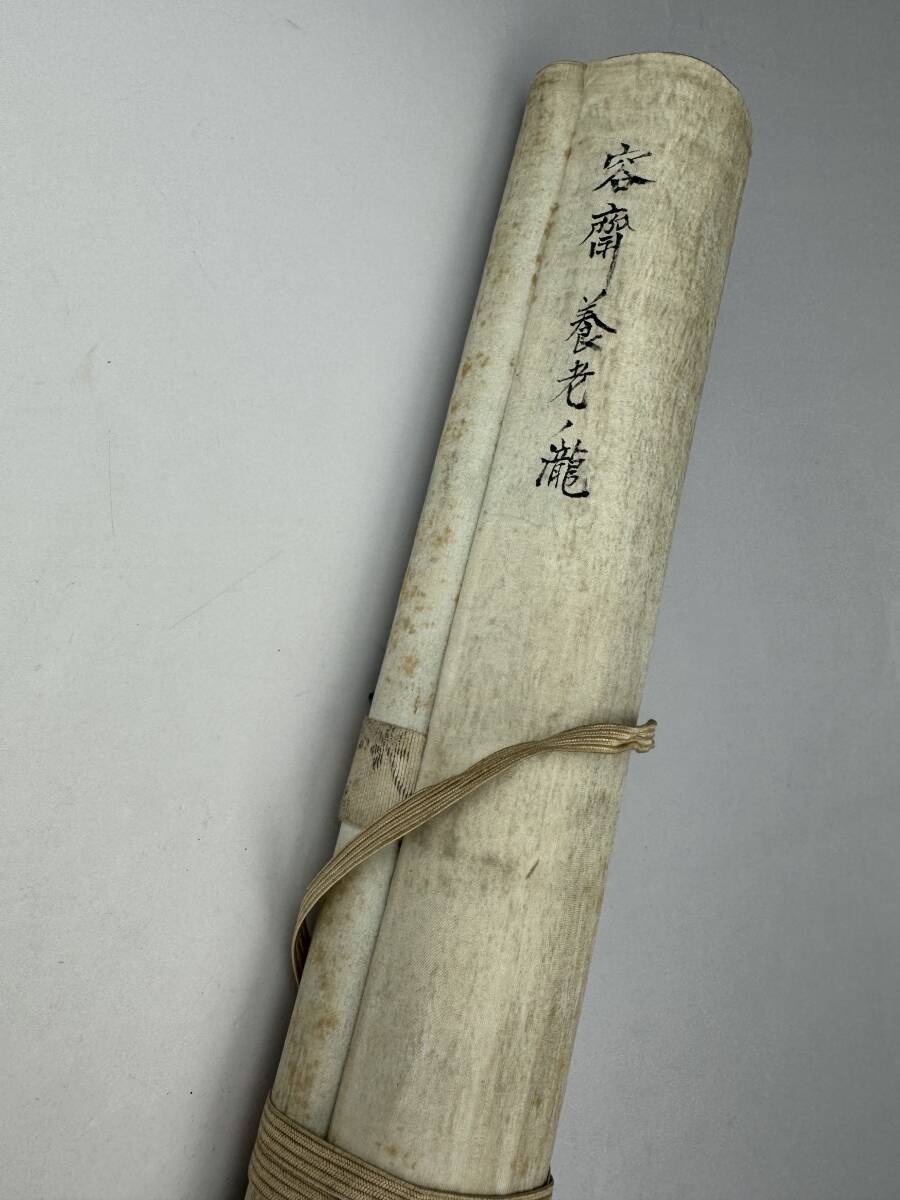 容齋養老ノ瀧